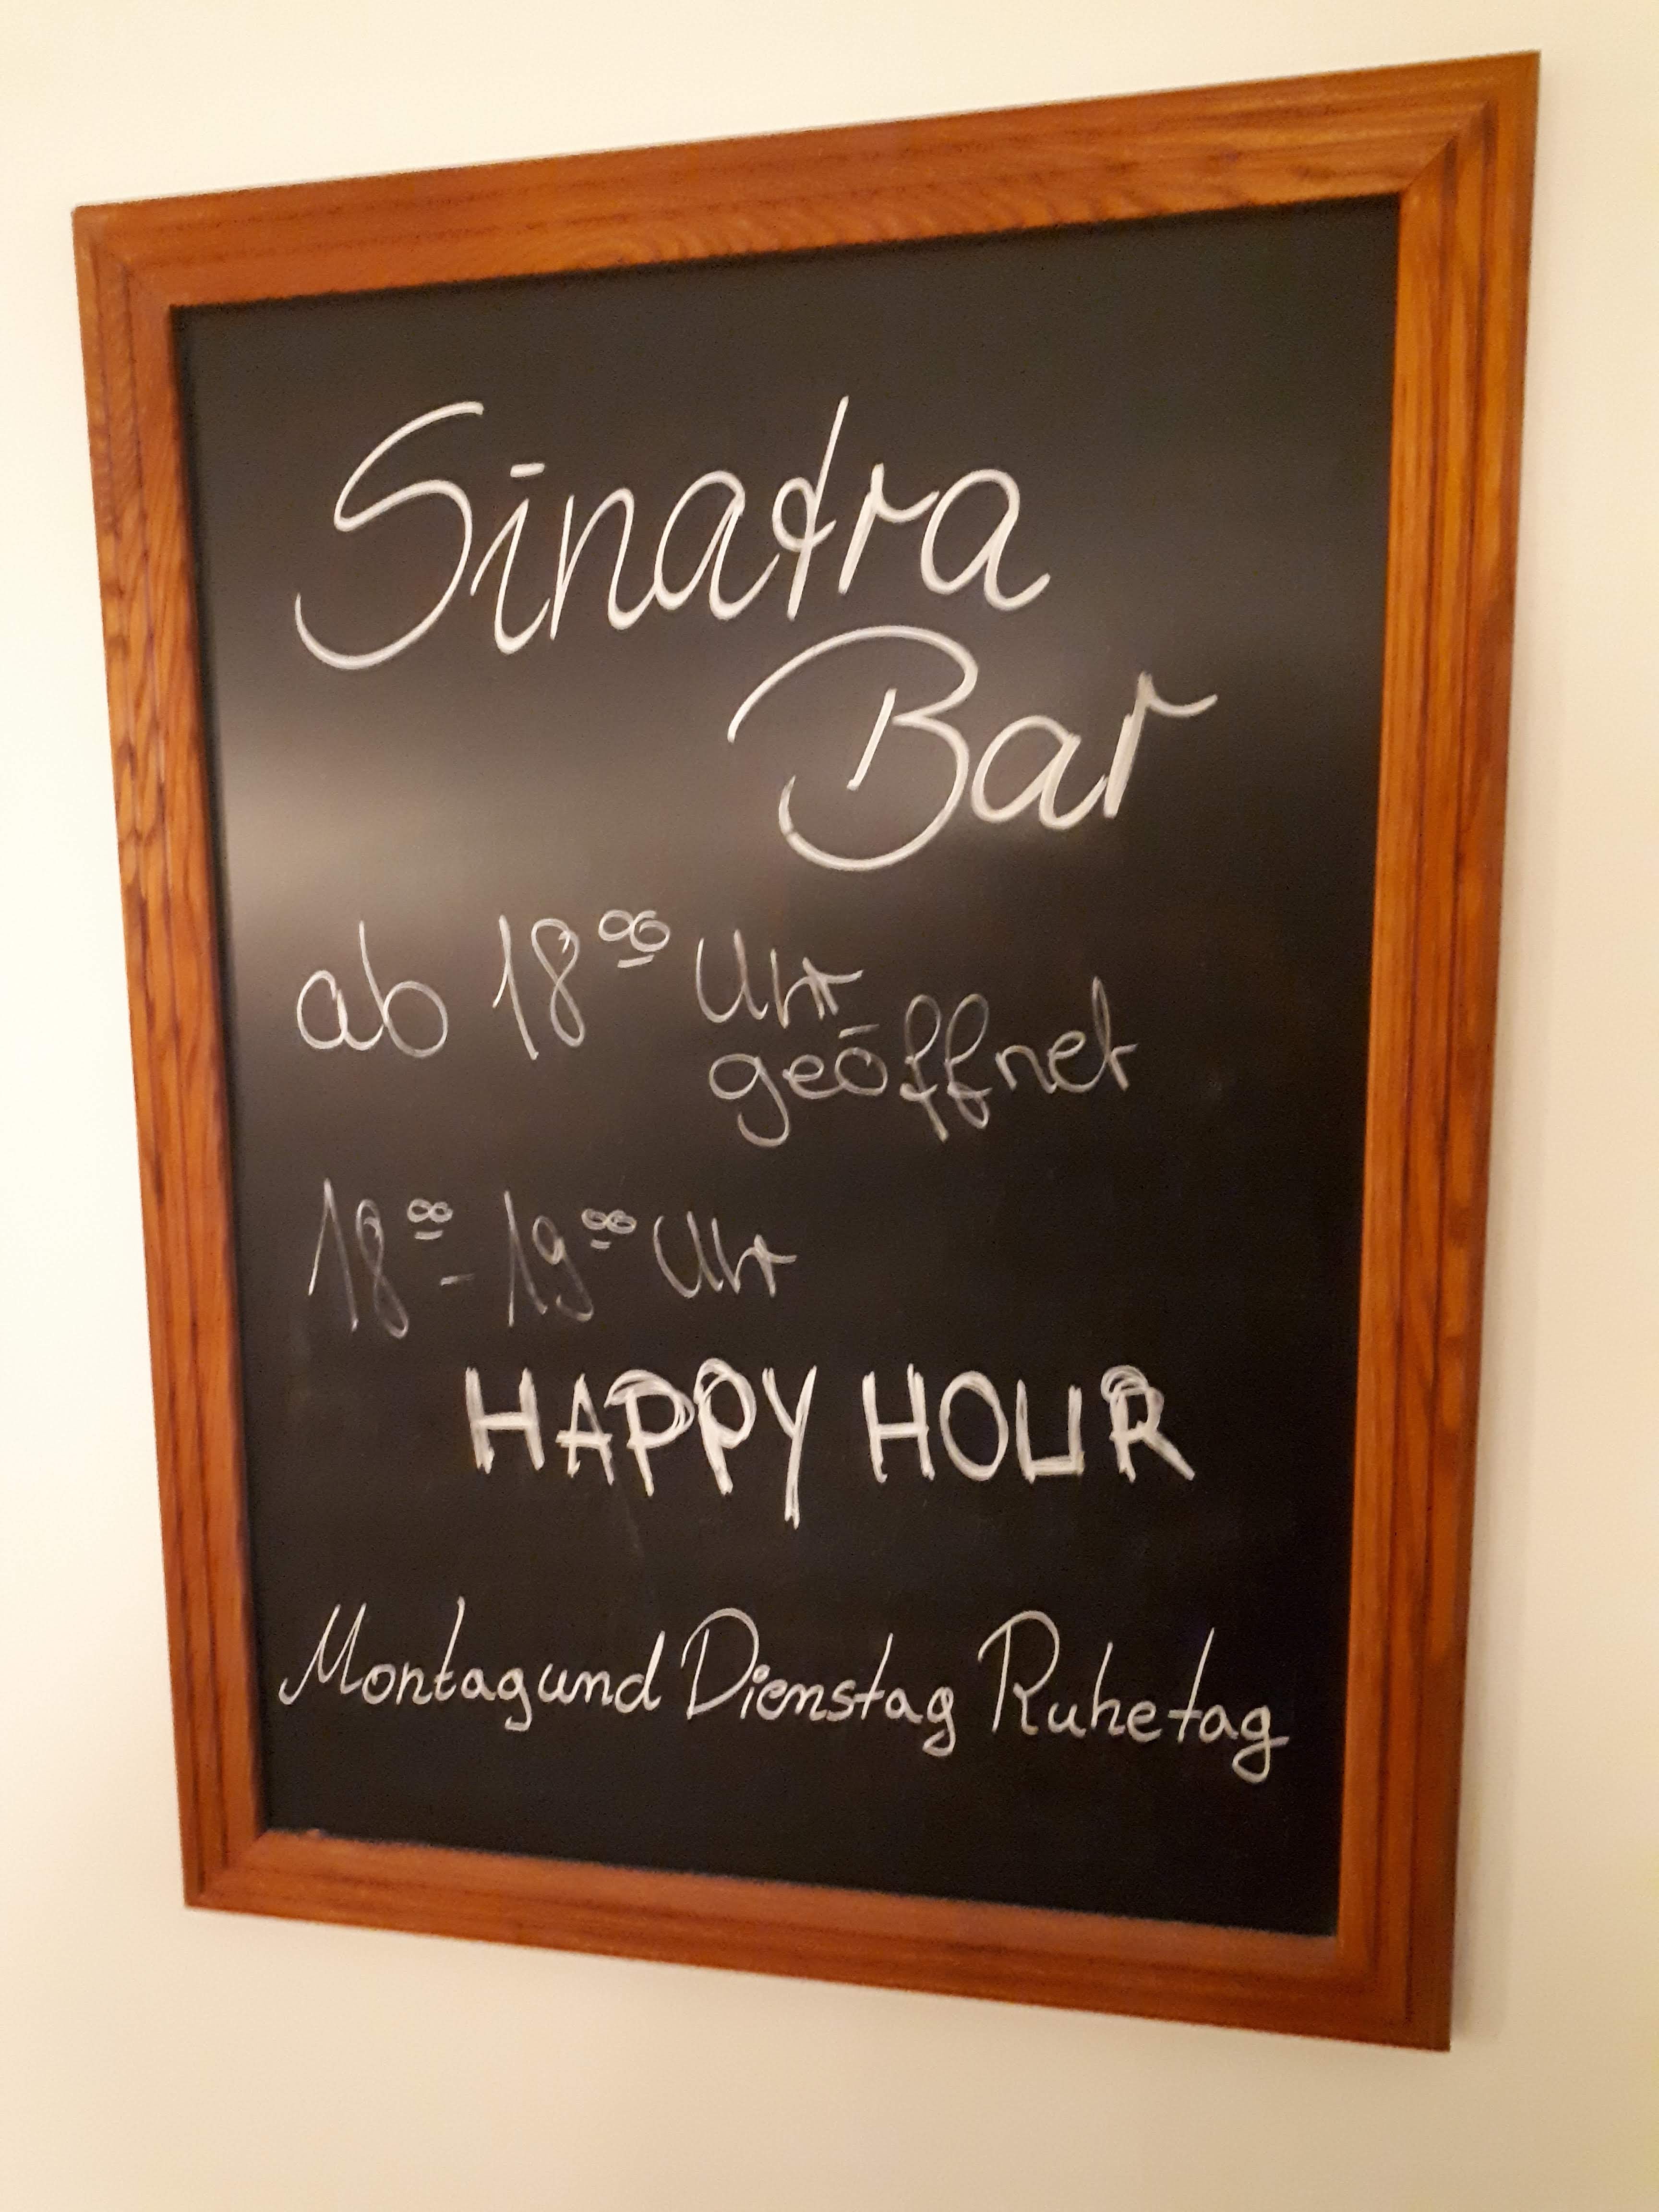 Sinatra
Bar
ab 18⁰⁰ Uhr
geöffnet
18⁰⁰ - 19⁰⁰ Uhr
HAPPY HOUR
Montag und Dienstag Ruhetag